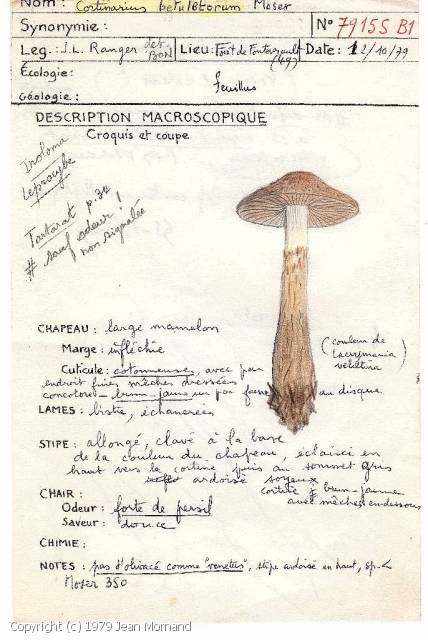 Nom : Cortinarius betuletorum Moser
Synonymie :
N° 7915S B1
Leg : J.L. Ranger det. Bon
Lieu : Forêt de Fontevrault (49)
Date : 12/10/79
Écologie :
feuillus
Géologie :
DESCRIPTION MACROSCOPIQUE
Croquis et coupe
Inoloma
Leprocybe
Tartarat p. 34
# sauf odeur !
non signalée
CHAPEAU : large mamelon
Marge : infléchie
Cuticule : cotonneuse, avec par
endroit fines mèches dressées
concolores - brun-jaune un peu foncé au disque
(couleur de
Lacrymaria
velutina)
LAMES : bistre, échancrées
STIPE : allongé, clavé à la base
de la couleur du chapeau, éclairci en
haut vers la cortine, puis au sommet gris
ardoisé soyeux
cortine brun-jaune
avec mèches en dessous
CHAIR :
Odeur : forte de persil
Saveur : douce
CHIMIE :
NOTES : pas d'olivacé comme "venetus", stipe ardoisé en haut, sp.
Moser 350
Copyright (c) 1979 Jean Mornand